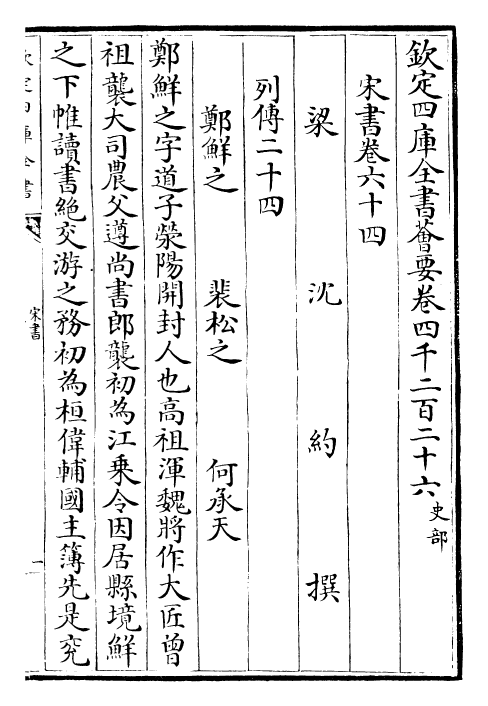 欽定四庫全書薈要卷四千二百二十六 史部
宋書卷六十四
梁 沈 約 撰
列傳二十四
鄭鮮之 裴松之 何承天
鄭鮮之字道子滎陽開封人也高祖渾魏將作大匠曾
祖襲大司農父遵尚書郎襲初為江乗令因居縣境鮮
之下帷讀書絶交游之務初為桓偉輔國主簿先是兖
宋書
一